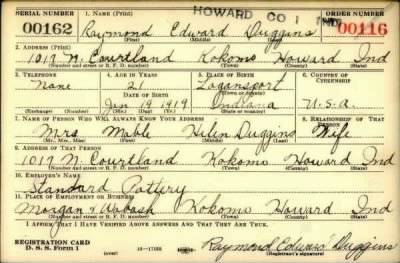 SERIAL NUMBER 1. NAME (Print) HOWARD CO 1 IND ORDER NUMBER
00162 Raymond Edward Duggins 00116
(First) (Middle) (Last)
2. ADDRESS (Print)
1017 N. Courtland Kokomo Howard Ind
(Number and street or R. F. D. number) (Town) (County) (State)
3. TELEPHONE 4. AGE IN YEARS 5. PLACE OF BIRTH 6. COUNTRY OF CITIZENSHIP
None 21 Logansport
DATE OF BIRTH (Town or county)
Jan 19 1919 Indiana U.S.A.
(Exchange) (Number) (Mo.) (Day) (Yr.) (State or country)
7. NAME OF PERSON WHO WILL ALWAYS KNOW YOUR ADDRESS 8. RELATIONSHIP OF THAT PERSON
Mrs Mable Helen Duggins Wife
(Mr., Mrs., Miss) (First) (Middle) (Last)
9. ADDRESS OF THAT PERSON
1017 N. Courtland Kokomo Howard Ind
(Number and street or R. F. D. number) (Town) (County) (State)
10. EMPLOYER'S NAME
Standard Pottery
11. PLACE OF EMPLOYMENT OR BUSINESS
Morgan & Wabash Kokomo Howard Ind
(Number and street or R. F. D. number) (Town) (County) (State)
I AFFIRM THAT I HAVE VERIFIED ABOVE ANSWERS AND THAT THEY ARE TRUE.
REGISTRATION CARD
D. S. S. Form 1 (over) 16—17105 Raymond Edward Duggins
(Registrant's signature)